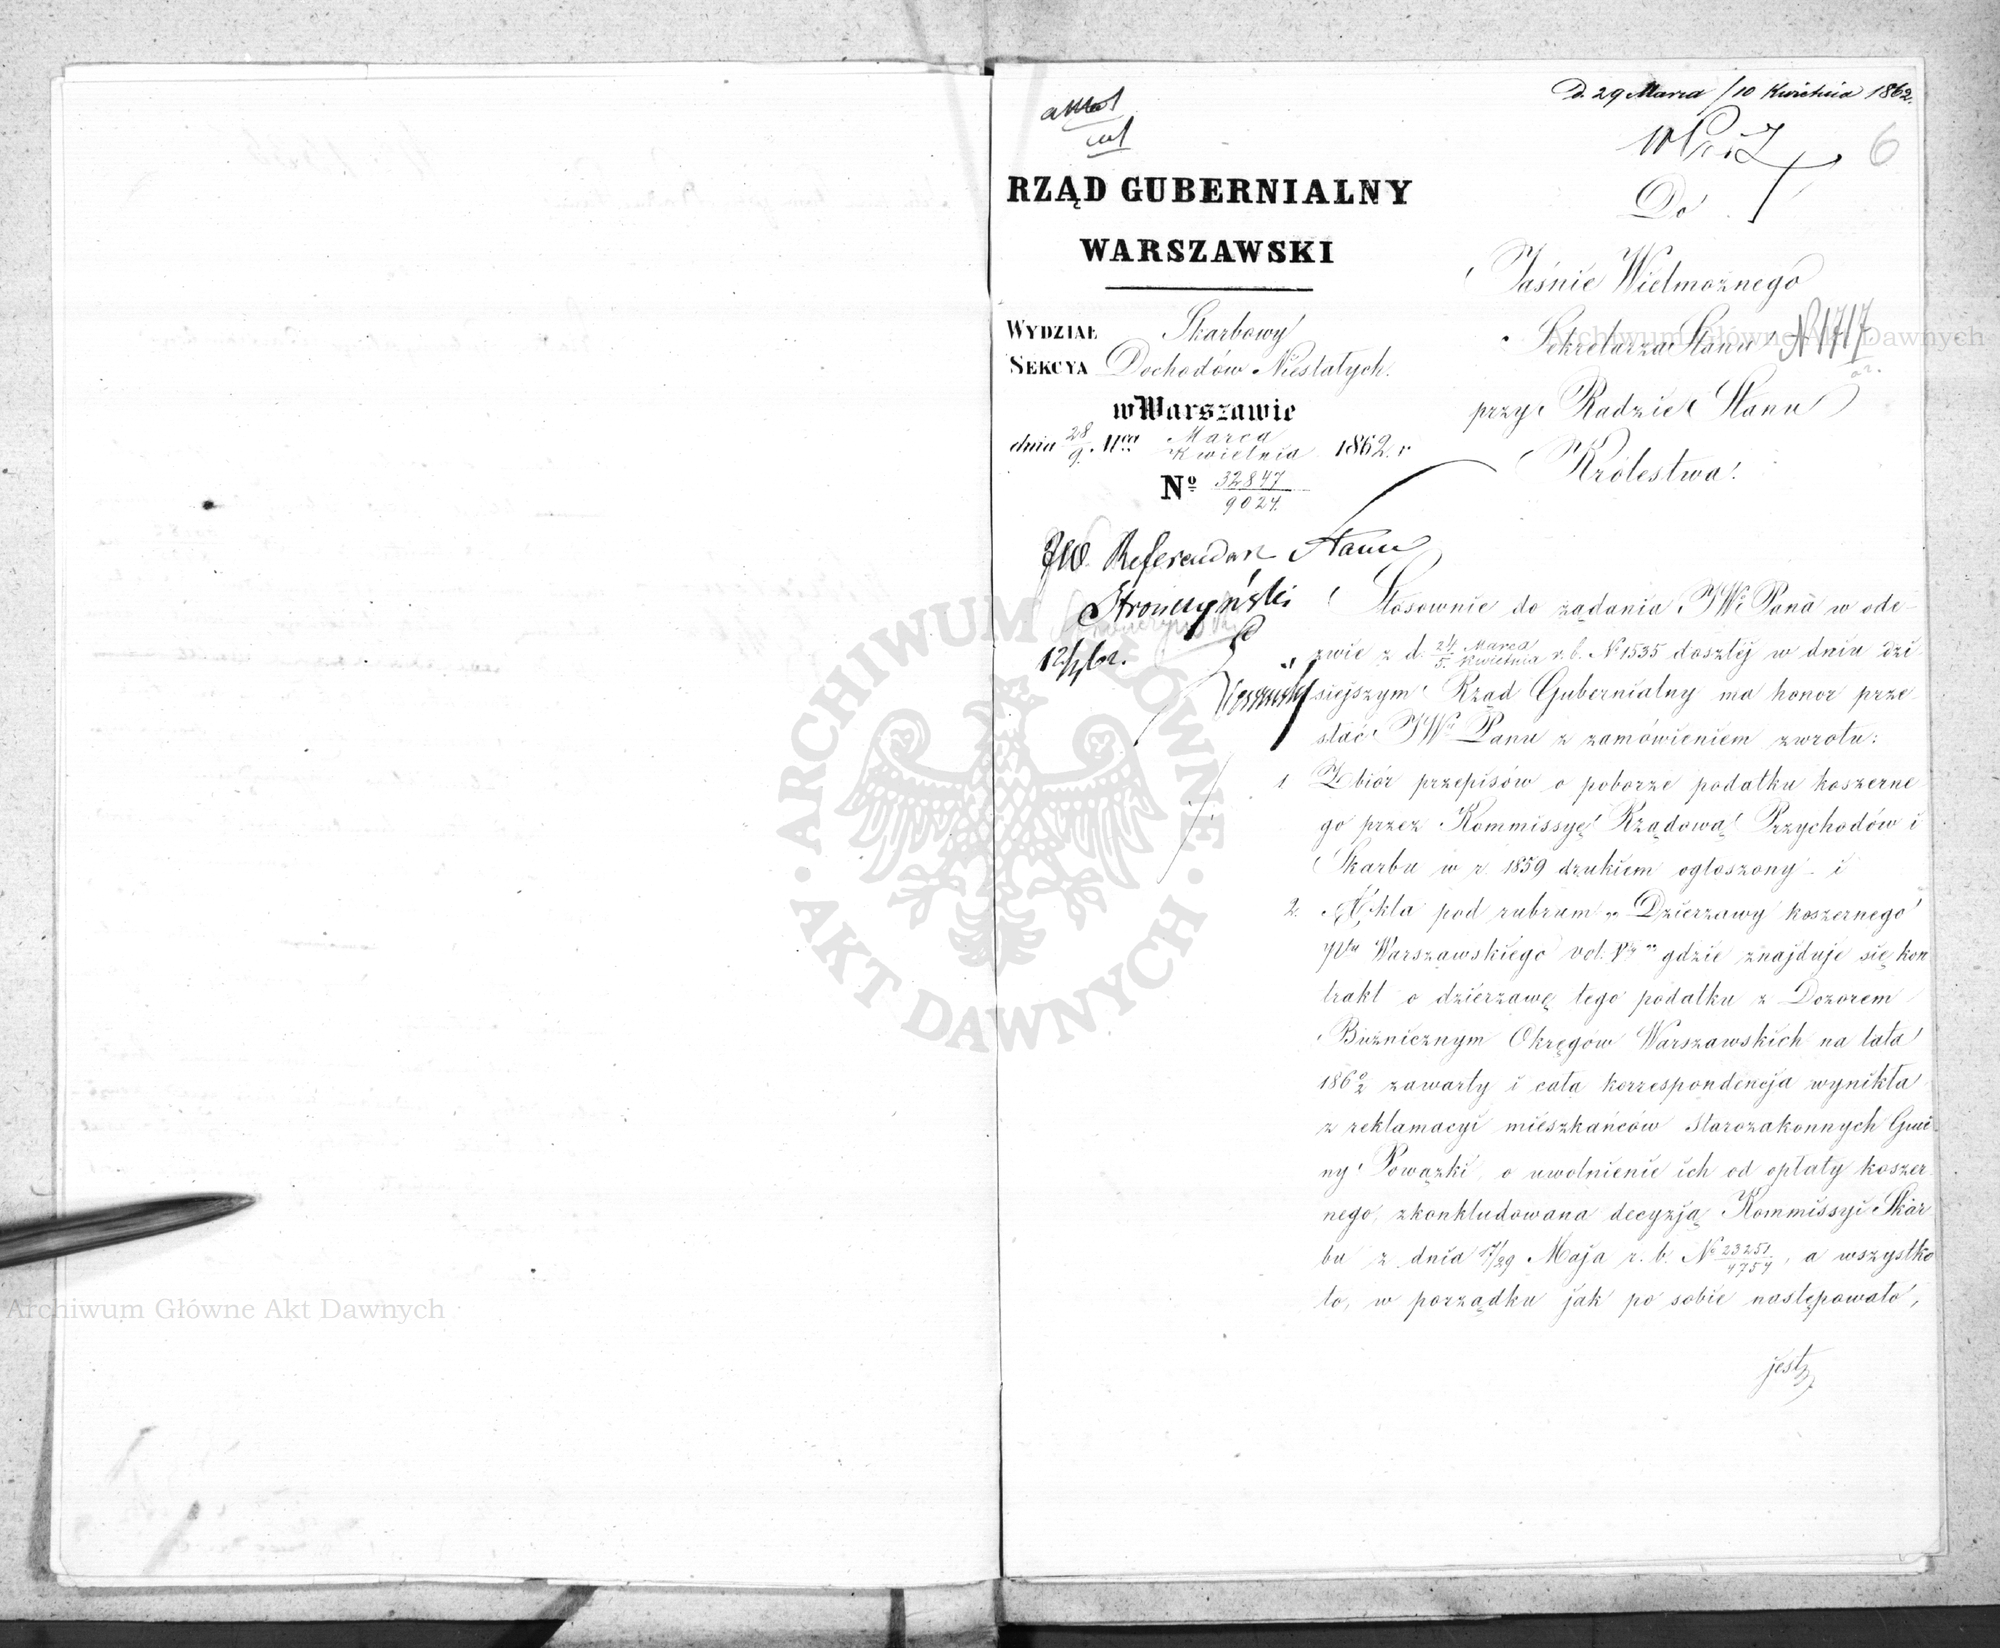 D. 29 Marca / 10 Kwietnia 1862.
6
RZĄD GUBERNIALNY
WARSZAWSKI
WYDZIAŁ Skarbowy
SEKCYA Dochodów Niestałych.
w Warszawie
dnia 28/9. Marca/Kwietnia 1862. r
Nº 32847/9024.
Do
Jaśnie Wielmożnego
Sekretarza Stanu
N 1717
przy Radzie Stanu
Królestwa.
JW. Referendarz Stanu
Stronczyński
12/4 62.
Stosownie do żądania JW. Pana w ode-
zwie z d. 24 Marca/5 Kwietnia r. b. Nº 1535 doszłej w dniu dzi-
siejszym Rząd Gubernialny ma honor prze-
słać JWu Panu z zamówieniem zwrotu:
1 Zbiór przepisów o poborze podatku koszerne
go przez Kommissyę Rządową Przychodów i
Skarbu w r. 1859 drukiem ogłoszony – i
2. Akta pod rubrum „Dzierżawy koszernego
Ptu Warszawskiego vol. V" gdzie znajduje się kon
trakt o dzierżawę tego podatku z Dozorem
Bużnicznym Okręgów Warszawskich na lata
1860/2 zawarty i cała korrespondencja wynikła
z reklamacyi mieszkańców starozakonnych Gmi
ny Powązki, o uwolnienie ich od opłaty koszer
nego, zkonkludowana decyzją Kommissyi Skar
bu z dnia 17/29 Maja r. b. Nº 23251/4757, a wszystko
to, w porządku jak po sobie następowało,
jest
ARCHIWUM GŁÓWNE AKT DAWNYCH
Archiwum Główne Akt Dawnych
Archiwum Główne Akt Dawnych